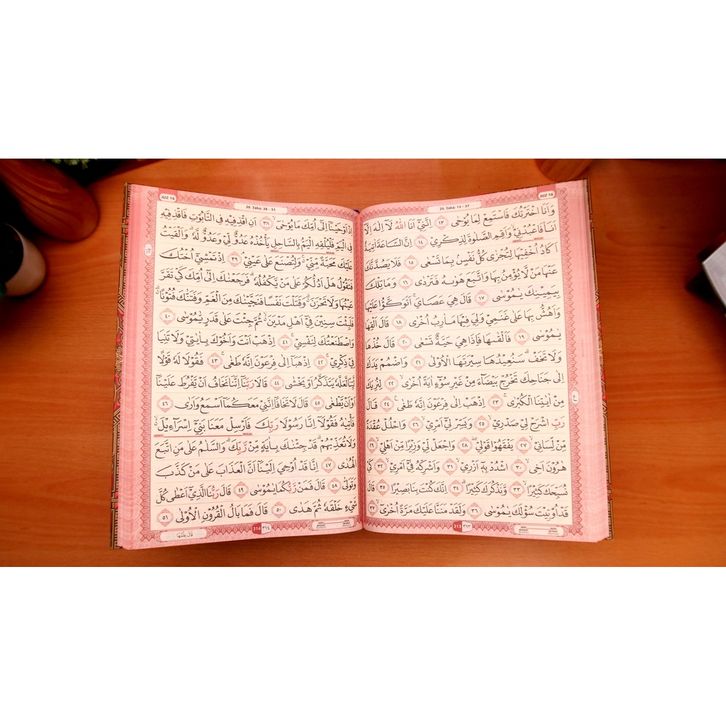 JUZ 16
20. Taha: 13 - 37
وَاَنَا اخْتَرْتُكَ فَاسْتَمِعْ لِمَا يُوْحٰى ١٣ اِنَّنِيْٓ اَنَا اللّٰهُ لَآ اِلٰهَ اِلَّآ
اَنَا۠ فَاعْبُدْنِيْۙ وَاَقِمِ الصَّلٰوةَ لِذِكْرِيْ ١٤ اِنَّ السَّاعَةَ اٰتِيَةٌ
اَكَادُ اُخْفِيْهَا لِتُجْزٰى كُلُّ نَفْسٍۢ بِمَا تَسْعٰى ١٥ فَلَا يَصُدَّنَّكَ
عَنْهَا مَنْ لَّا يُؤْمِنُ بِهَا وَاتَّبَعَ هَوٰىهُ فَتَرْدٰى ١٦ وَمَا تِلْكَ
بِيَمِيْنِكَ يٰمُوْسٰى ١٧ قَالَ هِيَ عَصَايَۚ اَتَوَكَّؤُا عَلَيْهَا
وَاَهُشُّ بِهَا عَلٰى غَنَمِيْ وَلِيَ فِيْهَا مَاٰرِبُ اُخْرٰى ١٨ قَالَ اَلْقِهَا
يٰمُوْسٰى ١٩ فَاَلْقٰىهَا فَاِذَا هِيَ حَيَّةٌ تَسْعٰى ٢٠ قَالَ خُذْهَا
وَلَا تَخَفْۗ سَنُعِيْدُهَا سِيْرَتَهَا الْاُوْلٰى ٢١ وَاضْمُمْ يَدَكَ
اِلٰى جَنَاحِكَ تَخْرُجْ بَيْضَاۤءَ مِنْ غَيْرِ سُوْۤءٍ اٰيَةً اُخْرٰى ٢٢ لِنُرِيَكَ
مِنْ اٰيٰتِنَا الْكُبْرٰى ٢٣ اِذْهَبْ اِلٰى فِرْعَوْنَ اِنَّهٗ طَغٰى ٢٤ قَالَ
رَبِّ اشْرَحْ لِيْ صَدْرِيْ ٢٥ وَيَسِّرْ لِيْٓ اَمْرِيْ ٢٦ وَاحْلُلْ عُقْدَةً
مِّنْ لِّسَانِيْ ٢٧ يَفْقَهُوْا قَوْلِيْ ٢٨ وَاجْعَلْ لِّيْ وَزِيْرًا مِّنْ اَهْلِيْ ٢٩
هٰرُوْنَ اَخِى ٣٠ اشْدُدْ بِهٖٓ اَزْرِيْ ٣١ وَاَشْرِكْهُ فِيْٓ اَمْرِيْ ٣٢ كَيْ
نُسَبِّحَكَ كَثِيْرًا ٣٣ وَّنَذْكُرَكَ كَثِيْرًا ٣٤ اِنَّكَ كُنْتَ بِنَا بَصِيْرًا ٣٥ قَالَ
قَدْ اُوْتِيْتَ سُؤْلَكَ يٰمُوْسٰى ٣٦ وَلَقَدْ مَنَنَّا عَلَيْكَ مَرَّةً اُخْرٰى ٣٧
313 ٣١٣
JUZ 16
20. Taha: 38 - 51
اِذْ اَوْحَيْنَآ اِلٰٓى اُمِّكَ مَا يُوْحٰى ٣٨ اَنِ اقْذِفِيْهِ فِى التَّابُوْتِ فَاقْذِفِيْهِ
فِى الْيَمِّ فَلْيُلْقِهِ الْيَمُّ بِالسَّاحِلِ يَأْخُذْهُ عَدُوٌّ لِّيْ وَعَدُوٌّ لَّهٗۗ وَاَلْقَيْتُ
عَلَيْكَ مَحَبَّةً مِّنِّيْ وَلِتُصْنَعَ عَلٰى عَيْنِيْ ٣٩ اِذْ تَمْشِيْٓ اُخْتُكَ
فَتَقُوْلُ هَلْ اَدُلُّكُمْ عَلٰى مَنْ يَّكْفُلُهٗۗ فَرَجَعْنٰكَ اِلٰٓى اُمِّكَ كَيْ تَقَرَّ
عَيْنُهَا وَلَا تَحْزَنَۗ وَقَتَلْتَ نَفْسًا فَنَجَّيْنٰكَ مِنَ الْغَمِّ وَفَتَنّٰكَ فُتُوْنًا
فَلَبِثْتَ سِنِيْنَ فِيْٓ اَهْلِ مَدْيَنَ ثُمَّ جِئْتَ عَلٰى قَدَرٍ يّٰمُوْسٰى ٤٠
وَاصْطَنَعْتُكَ لِنَفْسِيْ ٤١ اِذْهَبْ اَنْتَ وَاَخُوْكَ بِاٰيٰتِيْ وَلَا تَنِيَا
فِيْ ذِكْرِيْ ٤٢ اِذْهَبَآ اِلٰى فِرْعَوْنَ اِنَّهٗ طَغٰى ٤٣ فَقُوْلَا لَهٗ قَوْلًا
لَّيِّنًا لَّعَلَّهٗ يَتَذَكَّرُ اَوْ يَخْشٰى ٤٤ قَالَا رَبَّنَآ اِنَّنَا نَخَافُ اَنْ يَّفْرُطَ عَلَيْنَآ
اَوْ اَنْ يَّطْغٰى ٤٥ قَالَ لَا تَخَافَآ اِنَّنِيْ مَعَكُمَآ اَسْمَعُ وَاَرٰى ٤٦
فَأْتِيٰهُ فَقُوْلَآ اِنَّا رَسُوْلَا رَبِّكَ فَاَرْسِلْ مَعَنَا بَنِيْٓ اِسْرَاۤءِيْلَ
وَلَا تُعَذِّبْهُمْۗ قَدْ جِئْنٰكَ بِاٰيَةٍ مِّنْ رَّبِّكَۗ وَالسَّلٰمُ عَلٰى مَنِ اتَّبَعَ
الْهُدٰى ٤٧ اِنَّا قَدْ اُوْحِيَ اِلَيْنَآ اَنَّ الْعَذَابَ عَلٰى مَنْ كَذَّبَ
وَتَوَلّٰى ٤٨ قَالَ فَمَنْ رَّبُّكُمَا يٰمُوْسٰى ٤٩ قَالَ رَبُّنَا الَّذِيْٓ اَعْطٰى كُلَّ
شَيْءٍ خَلْقَهٗ ثُمَّ هَدٰى ٥٠ قَالَ فَمَا بَالُ الْقُرُوْنِ الْاُوْلٰى ٥١
314 ٣١٤
قَالَ عِلْمُهَا